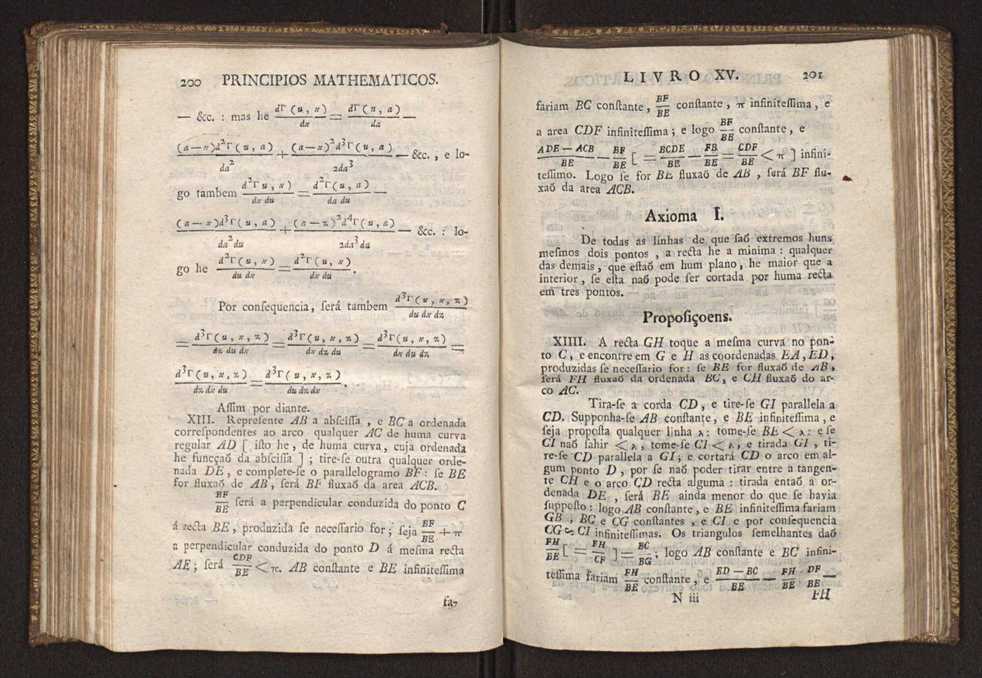 200 PRINCIPIOS MATHEMATICOS.
— &c. : mas he dΓ(u, x)/dx = dΓ(u, a)/da —
(a—x)d²Γ(u, a)/da² + (a—x)²d³Γ(u, a)/2da³ — &c., e lo-
go tambem d²Γ u, x)/dx du = d²Γ(u, a)/da du —
(a—x)d³Γ(u, a)/da² du + (a—x)²d⁴Γ(u, a)/2da³ du — &c. : lo-
go he d²Γ(u, x)/du dx = d²Γ(u, x)/dx du.
Por conſequencia, ſerá tambem d³Γ(u, x, z)/du dx dz
= d³Γ(u, x, z)/dx du dz = d³Γ(u, x, z)/dx dz du = d³Γ(u, x, z)/du dz dx =
d³Γ(u, x, z)/dz dx du = d³Γ(u, x, z)/dz du dx.
Aſſim por diante.
XIII. Repreſente AB a abſciſſa, e BC a ordenada
correſpondentes ao arco qualquer AC de huma curva
regular AD [ iſto he, de huma curva, cuja ordenada
he funcçaõ da abſciſſa ] ; tire-ſe outra qualquer orde-
nada DE, e complete-ſe o parallelogramo BF : ſe BE
for fluxaõ de AB, ſerá BF fluxaõ da area ACB.
BF/BE ſerá a perpendicular conduzida do ponto C
á recta BE, produzida ſe neceſſario for ; ſeja BF/BE + π
a perpendicular conduzida do ponto D á meſma recta
AE ; ſerá CDF/BE < π. AB conſtante e BE infiniteſſima
fa-
LIVRO XV. 201
fariam BC conſtante, BF/BE conſtante, π infiniteſſima, e
a area CDF infiniteſſima ; e logo BF/BE conſtante, e
ADE — ACB/BE — BF/BE [ = BCDE/BE — FB/BE = CDF/BE < π ] infini-
teſſimo. Logo ſe for BE fluxaõ de AB, ſerá BF flu-
xaõ da area ACB.
Axioma I.
De todas as linhas de que ſaõ extremos huns
meſmos dois pontos, a recta he a minima : qualquer
das demais, que eſtaõ em hum plano, he maior que a
interior, ſe eſta naõ pode ſer cortada por huma recta
em tres pontos.
Propoſiçoens.
XIIII. A recta GH toque a meſma curva no pon-
to C, e encontre em G e H as coordenadas EA, ED,
produzidas ſe neceſſario for : ſe BE for fluxaõ de AB,
ſerá FH fluxaõ da ordenada BC, e CH fluxaõ do ar-
co AC.
Tira-ſe a corda CD, e tire-ſe GI parallela a
CD. Supponha-ſe AB conſtante, e BE infiniteſſima, e
ſeja propoſta qualquer linha λ : tome-ſe BE < λ : e ſe
CI naõ ſahir < λ, tome-ſe CI < λ, e tirada GI, ti-
re-ſe CD parallela a GI ; e cortará CD o arco em al-
gum ponto D, por ſe naõ poder tirar entre a tangen-
te CH e o arco CD recta alguma : tirada entaõ a or-
denada DE, ſerá BE ainda menor do que ſe havia
ſuppoſto : logo AB conſtante, e BE infiniteſſima fariam
GB, BC e CG conſtantes, e CI e por conſequencia
CG ∾ CI infiniteſſimas. Os triangulos ſemelhantes daõ
FH/BE [ = FH/CF ] = BC/BG ; logo AB conſtante e BC infini-
teſſima fariam FH/BE conſtante, e ED — BC/BE — FH/BE DF/BE —
N iii FH